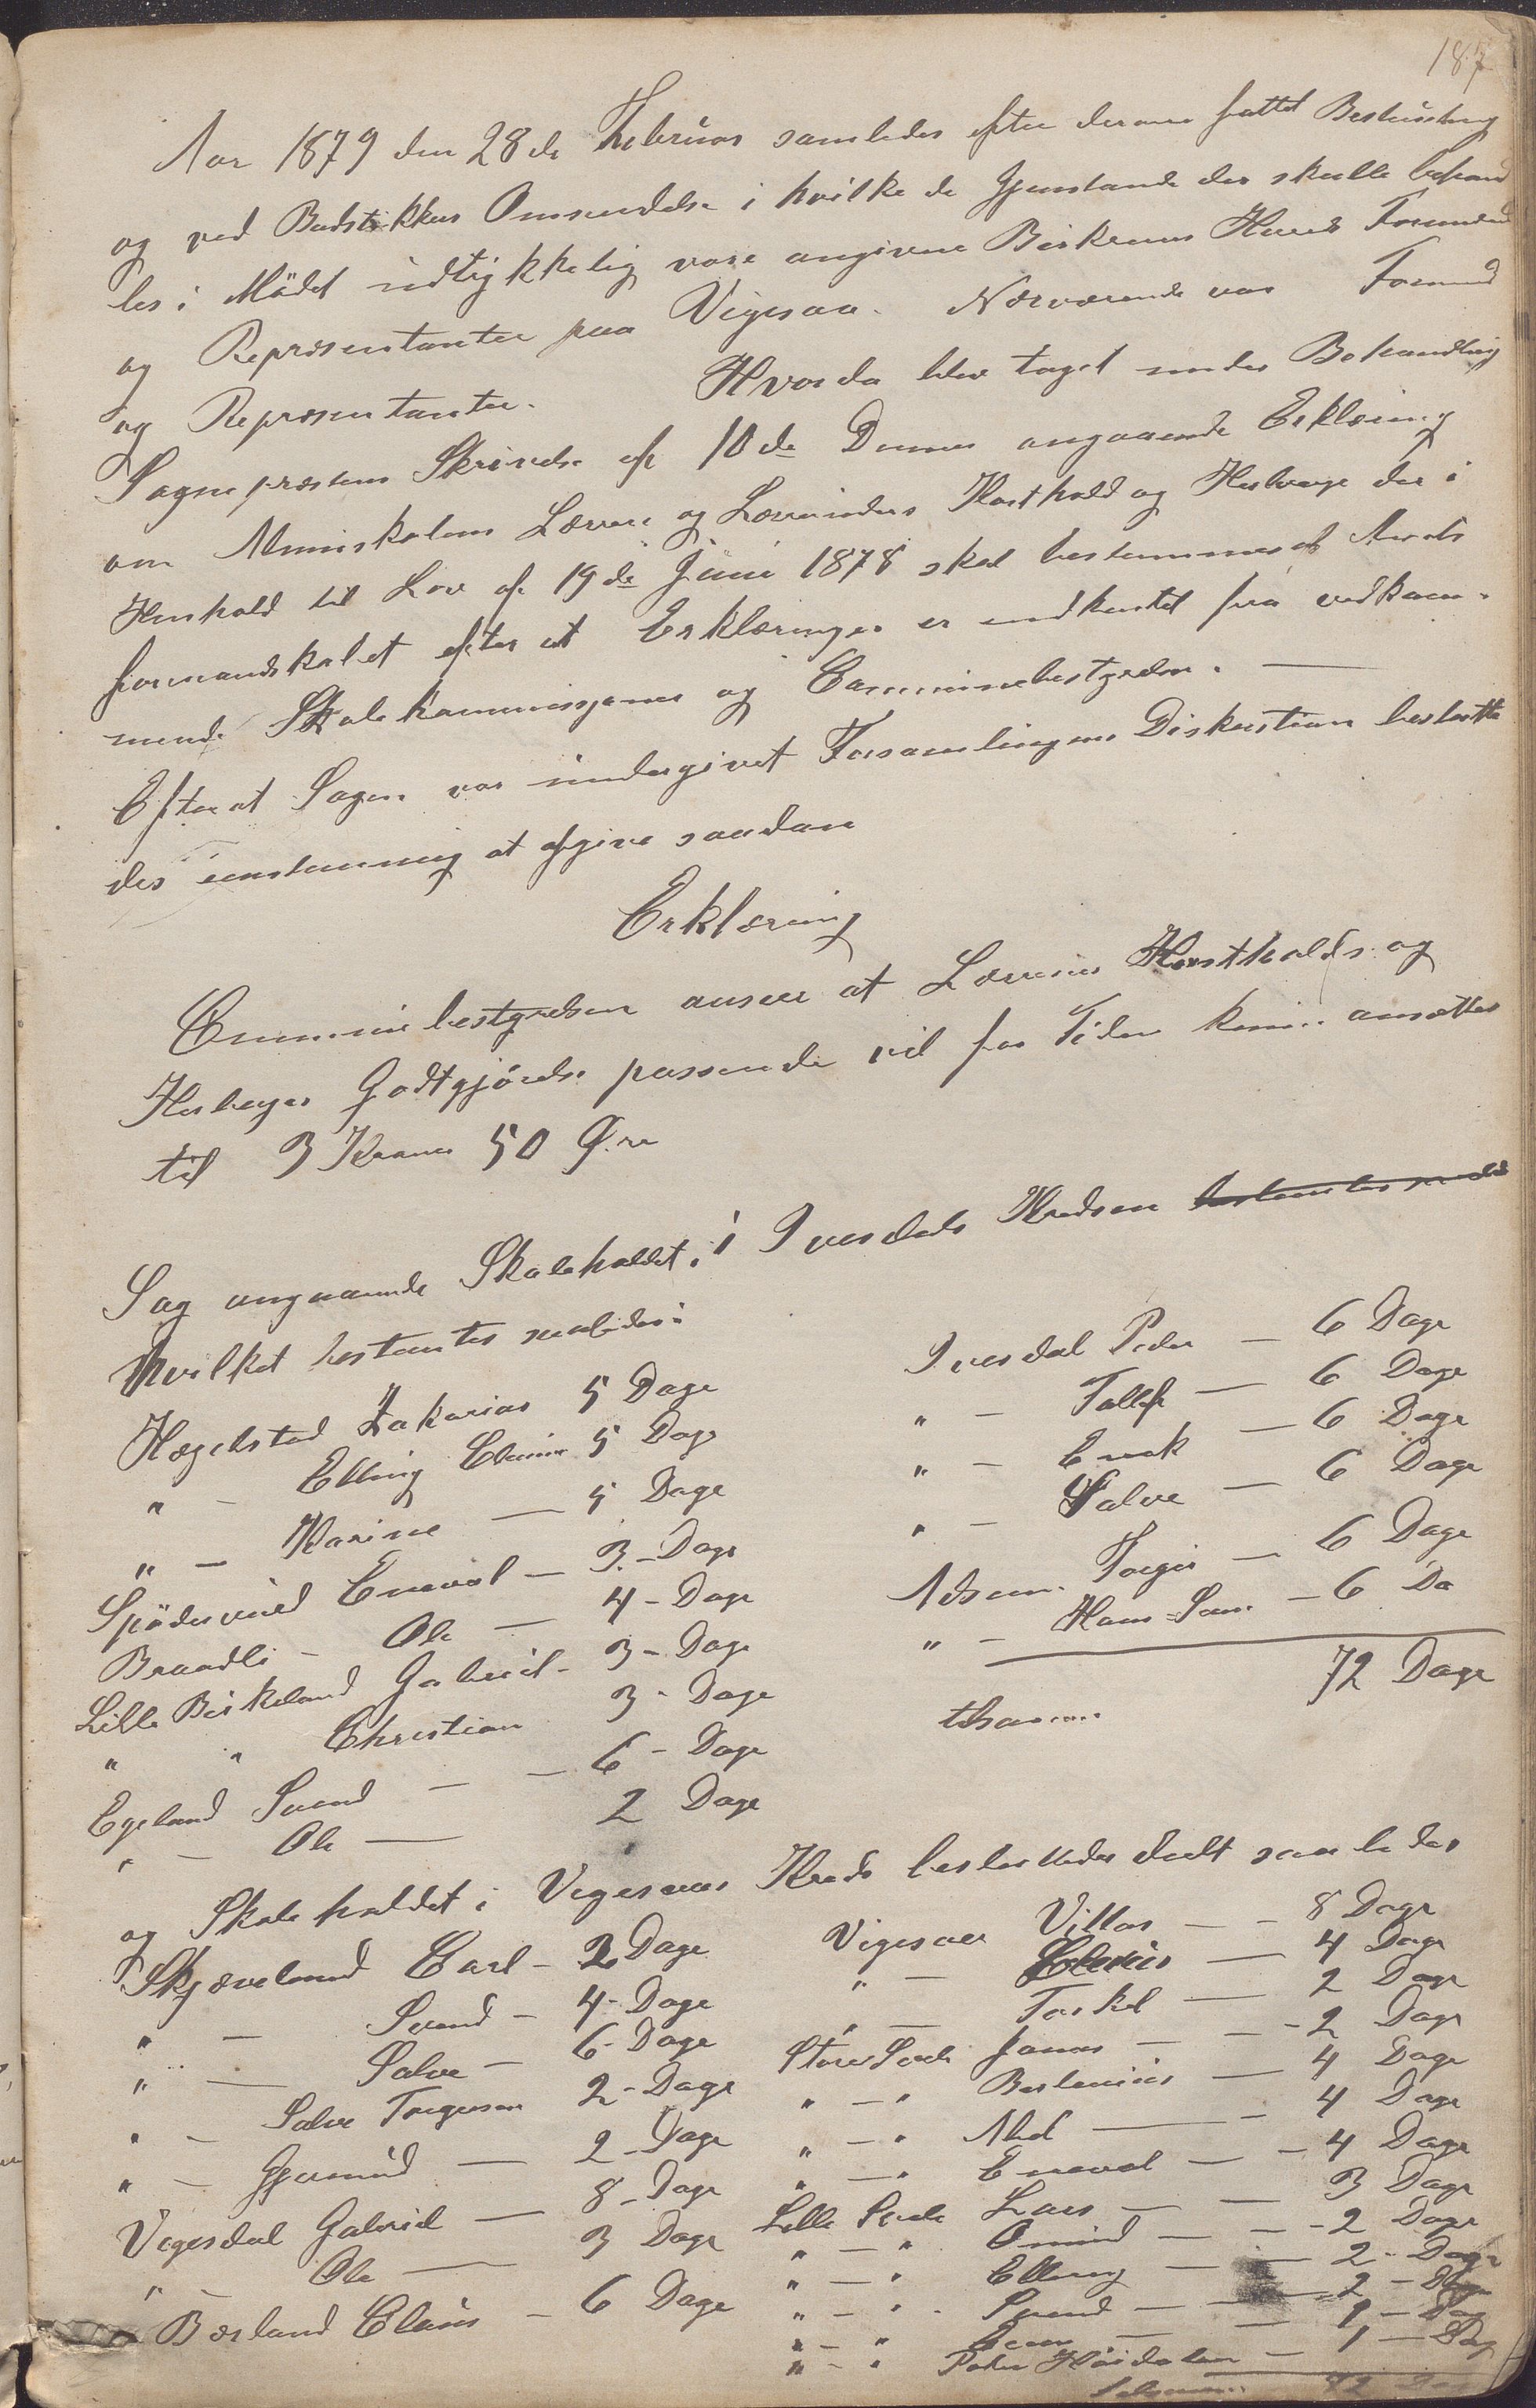 187
Aar 1879 den 28de Februar samledes efter derom fattet Beslutning
og ved Budstikkes Omsendelse i hvilke de Gjenstande der skulle behand
les i Mödet udtrykkelig vare angivne Birkrems Herreds Formænd
og Repræsentanter paa Vigesaa. Nærværende var Formænd
og Repræsentanter. Hvorda blev taget under Behandling
Sognepræstens Skrivelse af 10de Dennes angaaende Erklæring
om Almuskolens Lærere og Lærerinders Kosthold og Herberge der i
Henhold til Lov af 19de Juni 1878 skal bestemmes af Amts
formandskabet efter at Erklæringer er indhentet fra vedkom-
mende Skolekommissjoner og Commünebestyrelser. —
Efter at Sagen var undergivet Forsamlingens Diskustion beslutte
des eenstemmig at afgive saadan
Erklæring
Commünebestyrelsen anseer at Lærernes Kostholds og
Herberges Godtgjörelse passende vil for Tiden kunne ansættes
til 3 Kroner 50 Øre
Sag angaaende Skoleholdet i Ivesdals Kredsen
hvilket bestemtes saaledes:
Hægelstad Zakarias 5 Dage
" — Elling Elaine 5 Dage
" — Karine — 5 Dage
Spödervold Enevol — 3 - Dage
Braadli — Ole — 4 - Dage
Lille Birkeland Gabriel - 3 - Dage
" " Christian 3 - Dage
Egeland Svend — — 6 - Dage
" — Ole — 2 Dage
Ivesdal Peder — 6 Dage
" — Tollef — 6 Dage
" — Enok — 6 Dage
" — Salve — 6 Dage
Adsum. Torger — 6 Dage
" — Hans Sam. — 6 Da
tilsammen 72 Dage
og Skoleholdet i Vigesaas Kreds besluttedes deelt saaledes
Skjævelund Carl - 2 Dage
" — Svend - 4 - Dage
" — Salve — 6 - Dage
" — Salve Torgersen 2 - Dage
" — Gjermünd — 2 - Dage
Vigesdal Gabriel — 8 - Dage
" — Ole — 3 Dage
Bærland Claüs — 6 Dage
Vigesaa Villas — - 8 Dage
" — — 4 Dage
" — Torkel — 2 Dage
Store Svele Jonas — — - 2 Dage
" — " Bertenius — 4 Dage
" — " Abel — - 4 Dage
" — " Enevol — — 4 Dage
Lille Svele Lars — — 3 Dage
" — " Omünd — — - 2 Dage
" — " Elling — — 2 - Dage
" — " Svend — — 2 - Dage
" — " — 1 - Dag
" — " Peder Höidalen — 1 — Dag
72 Dage